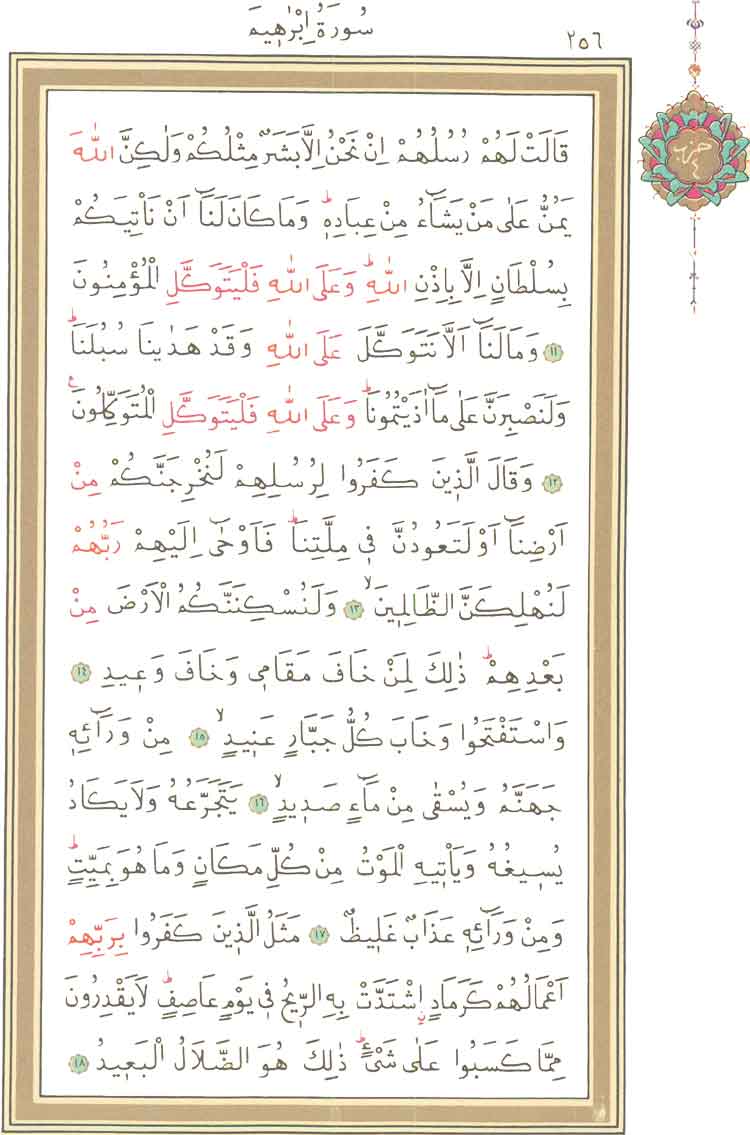 سُورَةُ اِبْرٰهٖيمَ
٢٥٦
حزب
٤
قَالَتْ لَهُمْ رُسُلُهُمْ اِنْ نَحْنُ اِلَّا بَشَرٌ مِثْلُكُمْ وَلٰكِنَّ اللّٰهَ
يَمُنُّ عَلٰى مَنْ يَشَٓاءُ مِنْ عِبَادِهٖؕ وَمَا كَانَ لَنَٓا اَنْ نَأْتِيَكُمْ
بِسُلْطَانٍ اِلَّا بِاِذْنِ اللّٰهِؕ وَعَلَى اللّٰهِ فَلْيَتَوَكَّلِ الْمُؤْمِنُونَ
﴿١١﴾ وَمَا لَنَٓا اَلَّا نَتَوَكَّلَ عَلَى اللّٰهِ وَقَدْ هَدٰينَا سُبُلَنَاؕ
وَلَنَصْبِرَنَّ عَلٰى مَٓا اٰذَيْتُمُونَاؕ وَعَلَى اللّٰهِ فَلْيَتَوَكَّلِ الْمُتَوَكِّلُونَ ع
﴿١٢﴾ وَقَالَ الَّذٖينَ كَفَرُوا لِرُسُلِهِمْ لَنُخْرِجَنَّكُمْ مِنْ
اَرْضِنَٓا اَوْ لَتَعُودُنَّ فٖى مِلَّتِنَاؕ فَاَوْحٰٓى اِلَيْهِمْ رَبُّهُمْ
لَنُهْلِكَنَّ الظَّالِمٖينَۙ ﴿١٣﴾ وَلَنُسْكِنَنَّكُمُ الْاَرْضَ مِنْ
بَعْدِهِمْؕ ذٰلِكَ لِمَنْ خَافَ مَقَامٖى وَخَافَ وَعٖيدِ ﴿١٤﴾
وَاسْتَفْتَحُوا وَخَابَ كُلُّ جَبَّارٍ عَنٖيدٍۙ ﴿١٥﴾ مِنْ وَرَٓائِهٖ
جَهَنَّمُ وَيُسْقٰى مِنْ مَٓاءٍ صَدٖيدٍۙ ﴿١٦﴾ يَتَجَرَّعُهُ وَلَا يَكَادُ
يُسٖيغُهُ وَيَأْتٖيهِ الْمَوْتُ مِنْ كُلِّ مَكَانٍ وَمَا هُوَ بِمَيِّتٍؕ
وَمِنْ وَرَٓائِهٖ عَذَابٌ غَلٖيظٌ ﴿١٧﴾ مَثَلُ الَّذٖينَ كَفَرُوا بِرَبِّهِمْ
اَعْمَالُهُمْ كَرَمَادٍۨ اشْتَدَّتْ بِهِ الرّٖيحُ فٖى يَوْمٍ عَاصِفٍؕ لَا يَقْدِرُونَ
مِمَّا كَسَبُوا عَلٰى شَیْءٍؕ ذٰلِكَ هُوَ الضَّلَالُ الْبَعٖيدُ ﴿١٨﴾